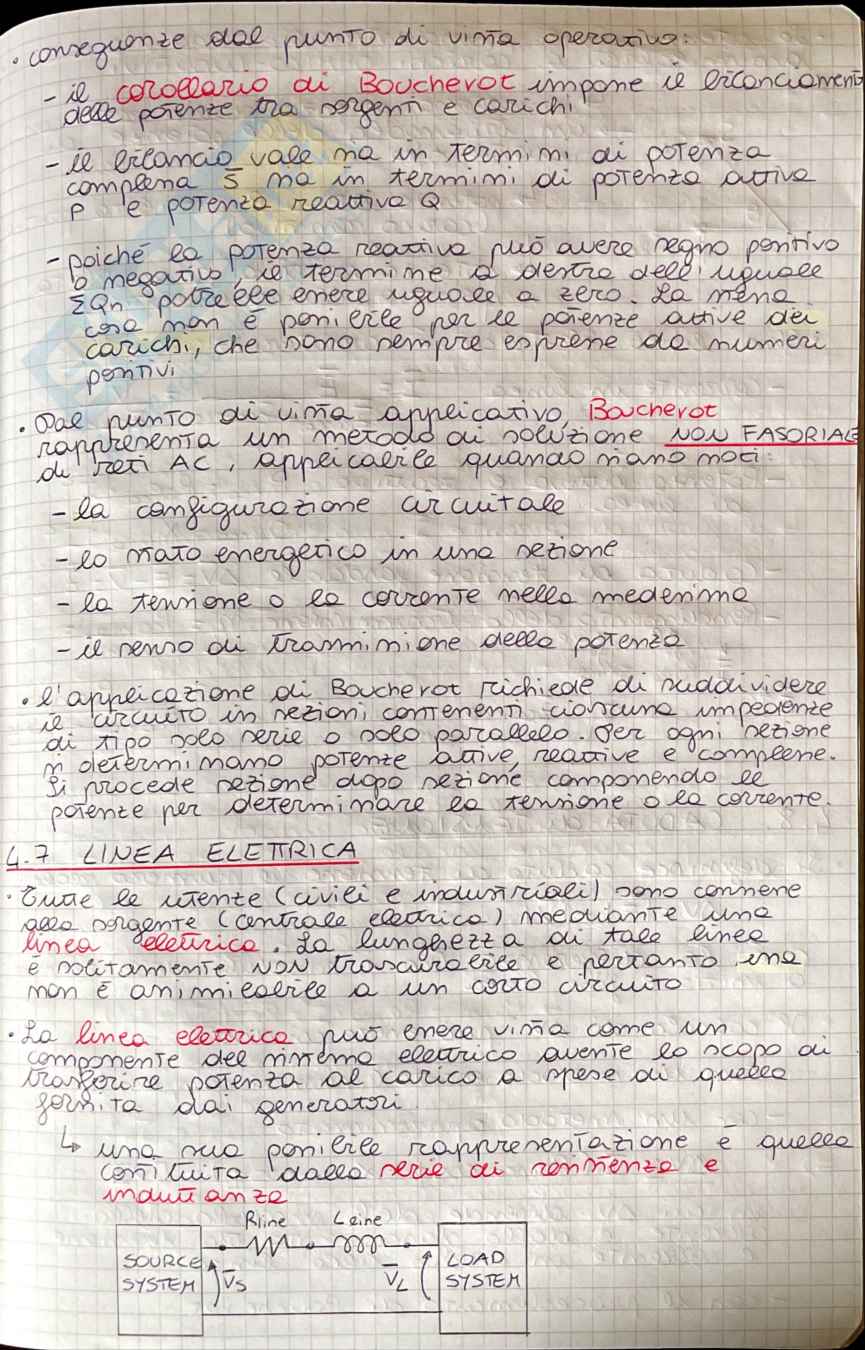 • conseguenze dal punto di vista operativo:
- il corollario di Boucherot impone il bilanciamento
delle potenze tra sorgenti e carichi
- il bilancio vale sia in termini di potenza
complessa S̄ sia in termini di potenza attiva
P e potenza reattiva Q
- poiché la potenza reattiva può avere segno positivo
o negativo, il termine a destra dell'uguale
ΣQn potrebbe essere uguale a zero. La stessa
cosa non è possibile per le potenze attive dei
carichi, che sono sempre espresse da numeri
positivi
• Dal punto di vista applicativo, Boucherot
rappresenta un metodo di soluzione NON FASORIALE
di reti AC, applicabile quando siano noti:
- la configurazione circuitale
- lo stato energetico in una sezione
- la tensione o la corrente nella medesima
- il senso di trasmissione della potenza
• l'applicazione di Boucherot richiede di suddividere
il circuito in sezioni contenenti ciascuna impedenze
di tipo solo serie o solo parallelo. Per ogni sezione
si determinano potenze attive, reattive e complesse.
Si procede sezione dopo sezione componendo le
potenze per determinare la tensione o la corrente.
4.7 LINEA ELETTRICA
• Tutte le utenze (civili e industriali) sono connesse
alla sorgente (centrale elettrica) mediante una
linea elettrica. La lunghezza di tale linea
è solitamente NON trascurabile e pertanto essa
non è assimilabile a un corto circuito
• La linea elettrica può essere vista come un
componente del sistema elettrico avente lo scopo di
trasferire potenza al carico a spese di quella
fornita dai generatori
↳ una sua possibile rappresentazione è quella
costituita dalla serie di resistenza e
induttanza
Rline Lline
SOURCE SYSTEM V̄s V̄L LOAD SYSTEM